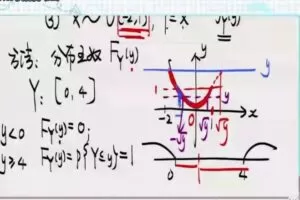 (3) X ~ U[-2,1], Y=X² f_Y(y)
方法: 分布函数 F_Y(y)
Y: [0, 4]
y<0 F_Y(y)=0;
y≥4 F_Y(y)=P{Y≤y}=1
y
y
1
y
-2
-√y
0
√y
√y
x
0
1
4